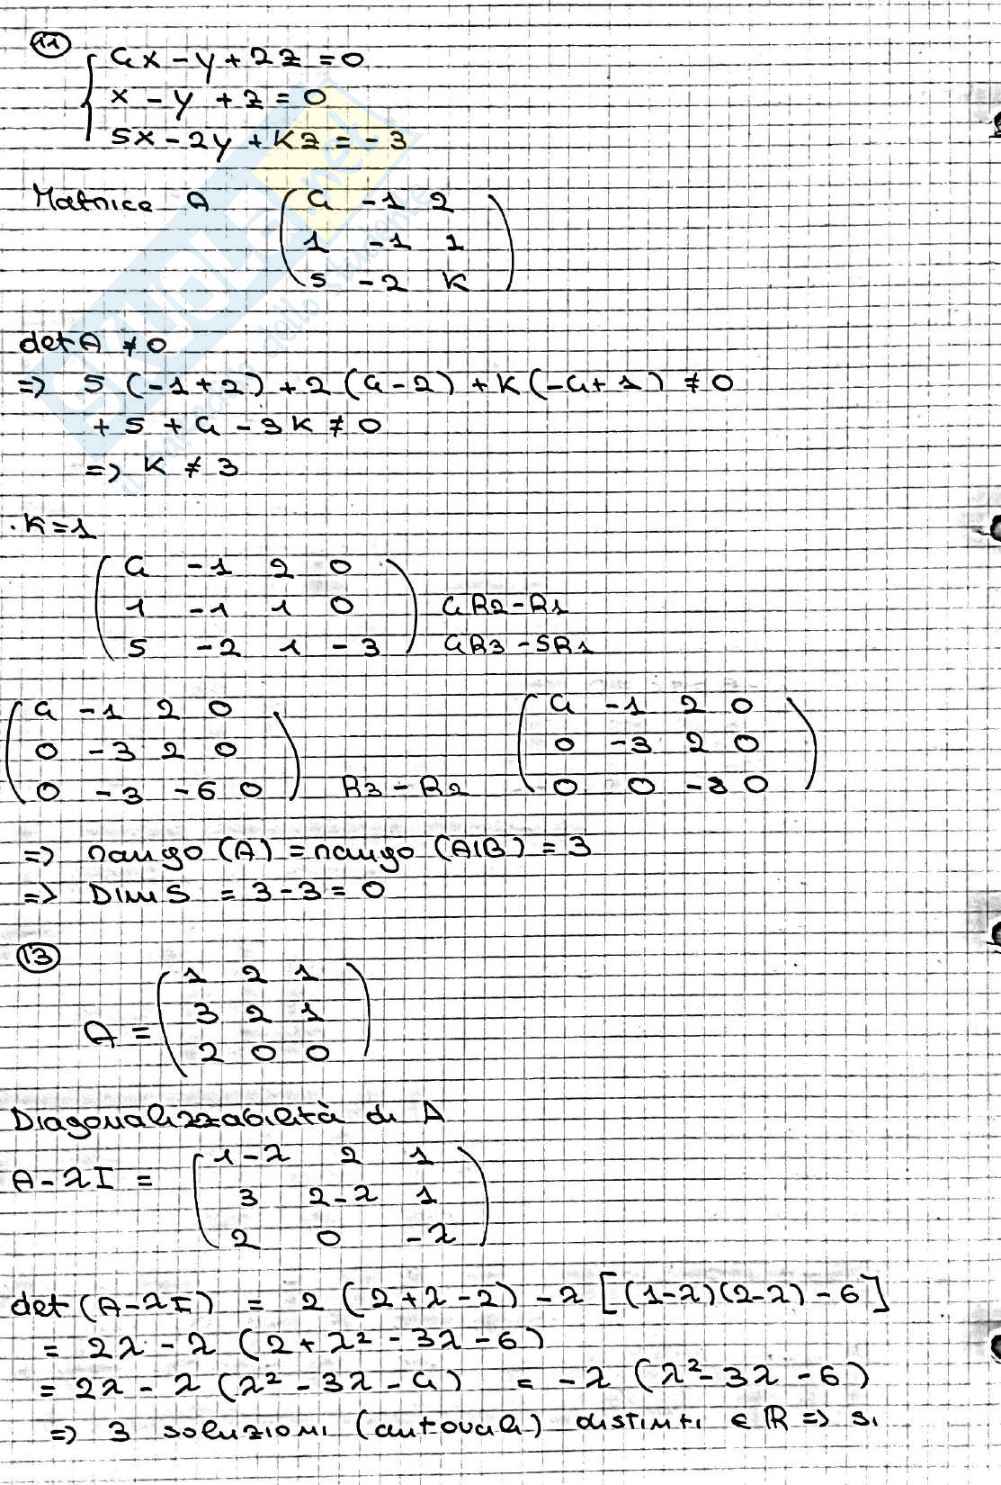 11
4x - y + 2z = 0
x - y + z = 0
5x - 2y + kz = -3
Matrice A
4 -1 2
1 -1 1
5 -2 k
det A ≠ 0
=> 5 (-1+2) + 2 (4-2) + k (-4+1) ≠ 0
+ 5 + 4 - 3k ≠ 0
=> k ≠ 3
· k=1
4 -1 2 0
1 -1 1 0 4R2-R1
5 -2 1 -3 4R3-5R1
4 -1 2 0
0 -3 2 0
0 -3 -6 0 R3-R2
4 -1 2 0
0 -3 2 0
0 0 -8 0
=> rango (A) = rango (A|B) = 3
=> Dim S = 3-3 = 0
13
A =
1 2 1
3 2 1
2 0 0
Diagonalizzabilità di A
A-λI =
1-λ 2 1
3 2-λ 1
2 0 -λ
det (A-λI) = 2 (2+λ-2) -λ [(1-λ)(2-λ) - 6]
= 2λ - λ (2 + λ² - 3λ - 6)
= 2λ - λ (λ² - 3λ - 4) = -λ (λ² - 3λ - 6)
=> 3 soluzioni (autovali) distinti ∈ ℝ => si